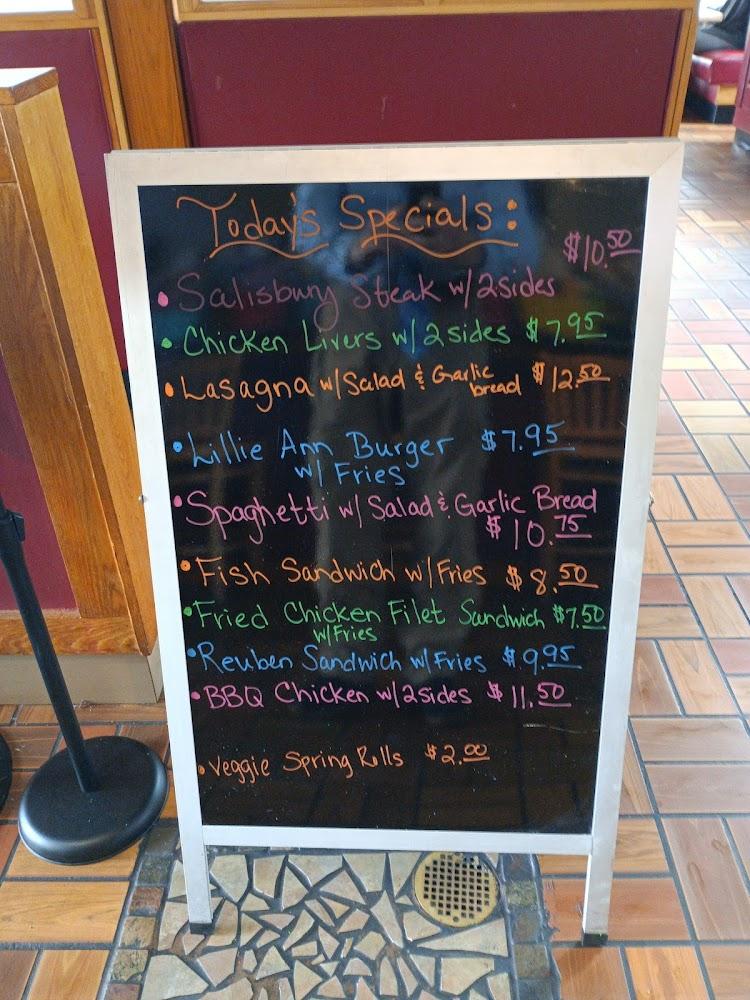 Today's Specials:
• Salisbury Steak w/ 2 sides $10.50
• Chicken Livers w/ 2 sides $7.95
• Lasagna w/ Salad & Garlic bread $12.50
• Lillie Ann Burger $7.95
w/ Fries
• Spaghetti w/ Salad & Garlic Bread
$10.75
• Fish Sandwich w/ Fries $8.50
• Fried Chicken Filet Sandwich $7.50
w/Fries
• Reuben Sandwich w/ Fries $9.95
• BBQ Chicken w/ 2 sides $11.50
• Veggie Spring Rolls $2.00